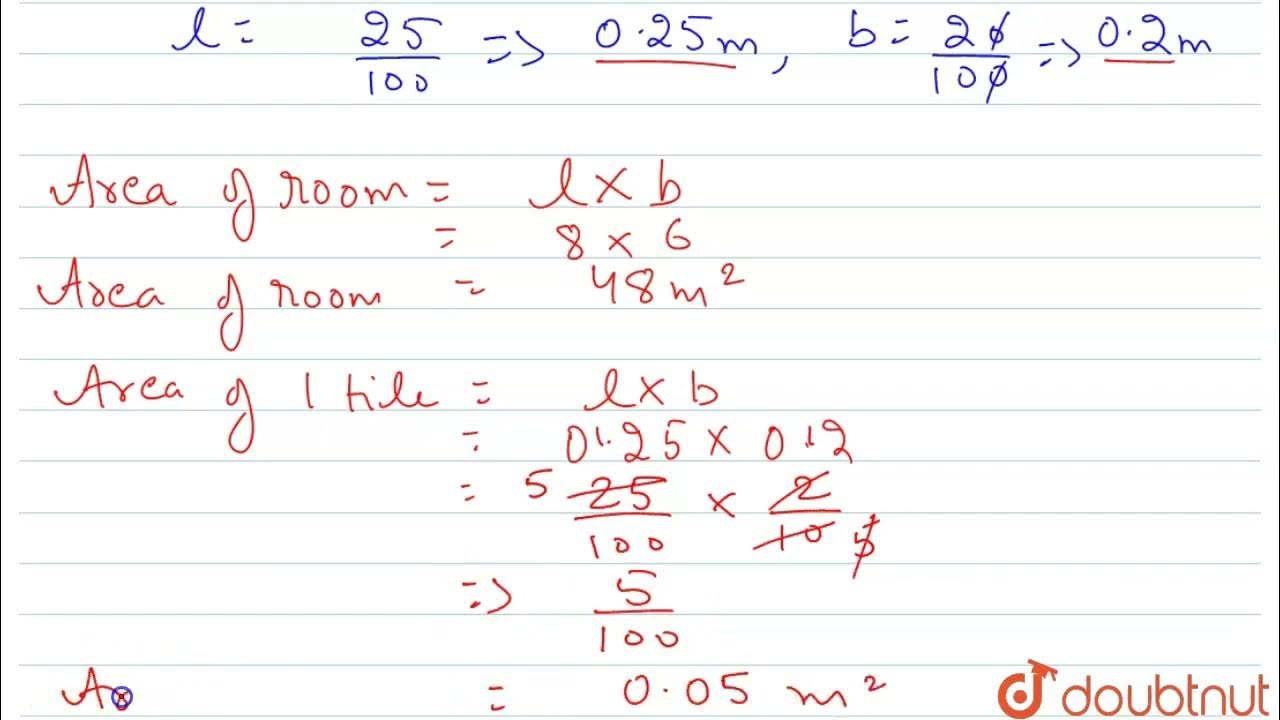 l = 25/100 => 0.25m, b = 20/100 => 0.2m
Area of room = l x b
= 8 x 6
Area of room = 48m²
Area of 1 tile = l x b
= 0.25 x 0.2
= 5 25/100 x 2/10 5
=> 5/100
= 0.05 m²
doubtnut